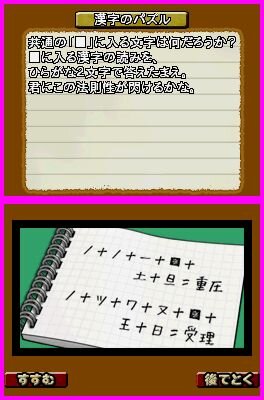 漢字のパズル
共通の「■」に入る文字は何だろうか?
■に入る漢字の読みを、
ひらがな2文字で答えたまえ。
君にこの法則性が閃けるかな。
ノ+ノ+一+?+
土+旦=重圧
ノ+ツ+ワ+ヌ+?+
王+日=受理
すすむ
後でとく